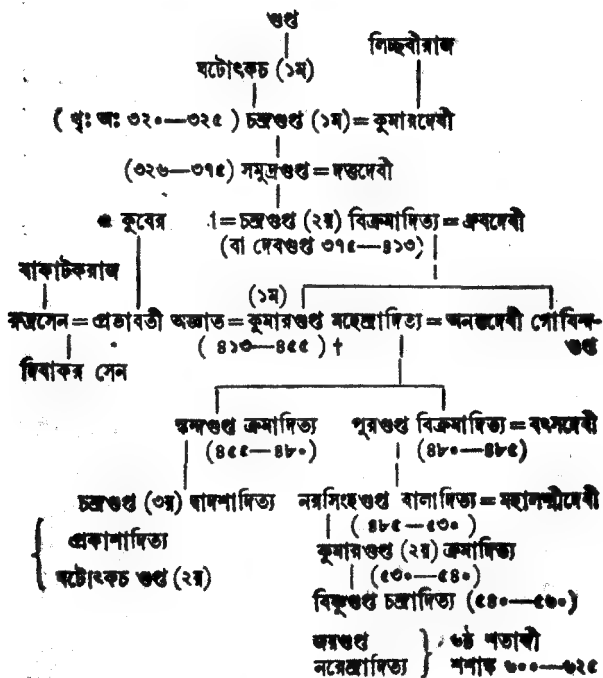 গুপ্ত
লিচ্ছবীরাজ
ঘটোৎকচ (১ম)
( খৃঃ অঃ ৩২০—৩২৫ ) চন্দ্রগুপ্ত (১ম) = কুমারদেবী
(৩২৬—৩৭৫) সমুদ্রগুপ্ত = দত্তদেবী
কুবের = চন্দ্রগুপ্ত (২য়) বিক্রমাদিত্য = ধ্রুবদেবী
(বা দেবগুপ্ত ৩৭৫—৪১৩)
বাকাটকরাজ
(১ম)
রুদ্রসেন = প্রভাবতী অজ্ঞাত = কুমারগুপ্ত মহেন্দ্রাদিত্য = অনন্তদেবী গোবিন্দ-
( ৪১৩—৪৫৫ ) † গুপ্ত
দিবাকর সেন
স্কন্দগুপ্ত ক্রমাদিত্য পূরগুপ্ত বিক্রমাদিত্য = বৎসদেবী
(৪৫৫—৪৮০) (৪৮০—৪৮৫)
চন্দ্রগুপ্ত (৩য়) দ্বাদশাদিত্য নরসিংহগুপ্ত বালাদিত্য = মহালক্ষ্মীদেবী
( ৪৮৫—৫৩০ )
প্রকাশাদিত্য কুমারগুপ্ত (২য়) ক্রমাদিত্য
(৫৩০—৫৪০)
ঘটোৎকচ গুপ্ত (২য়)
বিষ্ণুগুপ্ত চন্দ্রাদিত্য (৫৪০—৫৬০)
জয়গুপ্ত } ৬ষ্ঠ শতাব্দী
নরেন্দ্রাদিত্য } শশাঙ্ক ৬০০—৬২৫